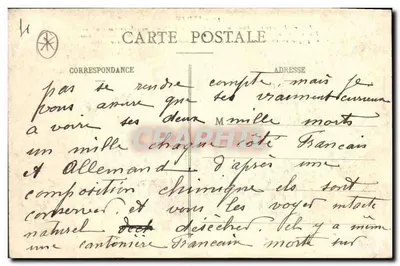 4
CARTE POSTALE
CORRESPONDANCE
ADRESSE
pas se rendre compte, mais je
vous assure que ses vraiment curieux
a voire ses deux M mille morts
un mille chaque côté Francais
et Allemand d'après une
composition chimique ils sont
conserver, et vous les voyer intacte
naturel deséched. Il y a même
une cantonière Francaise morte sur